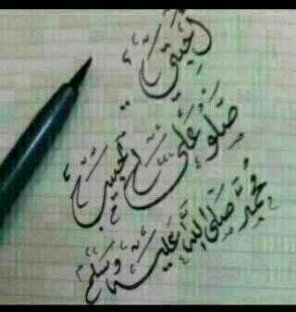 أحبتي
صلوا على الحبيب
محمد صلى الله عليه وسلم